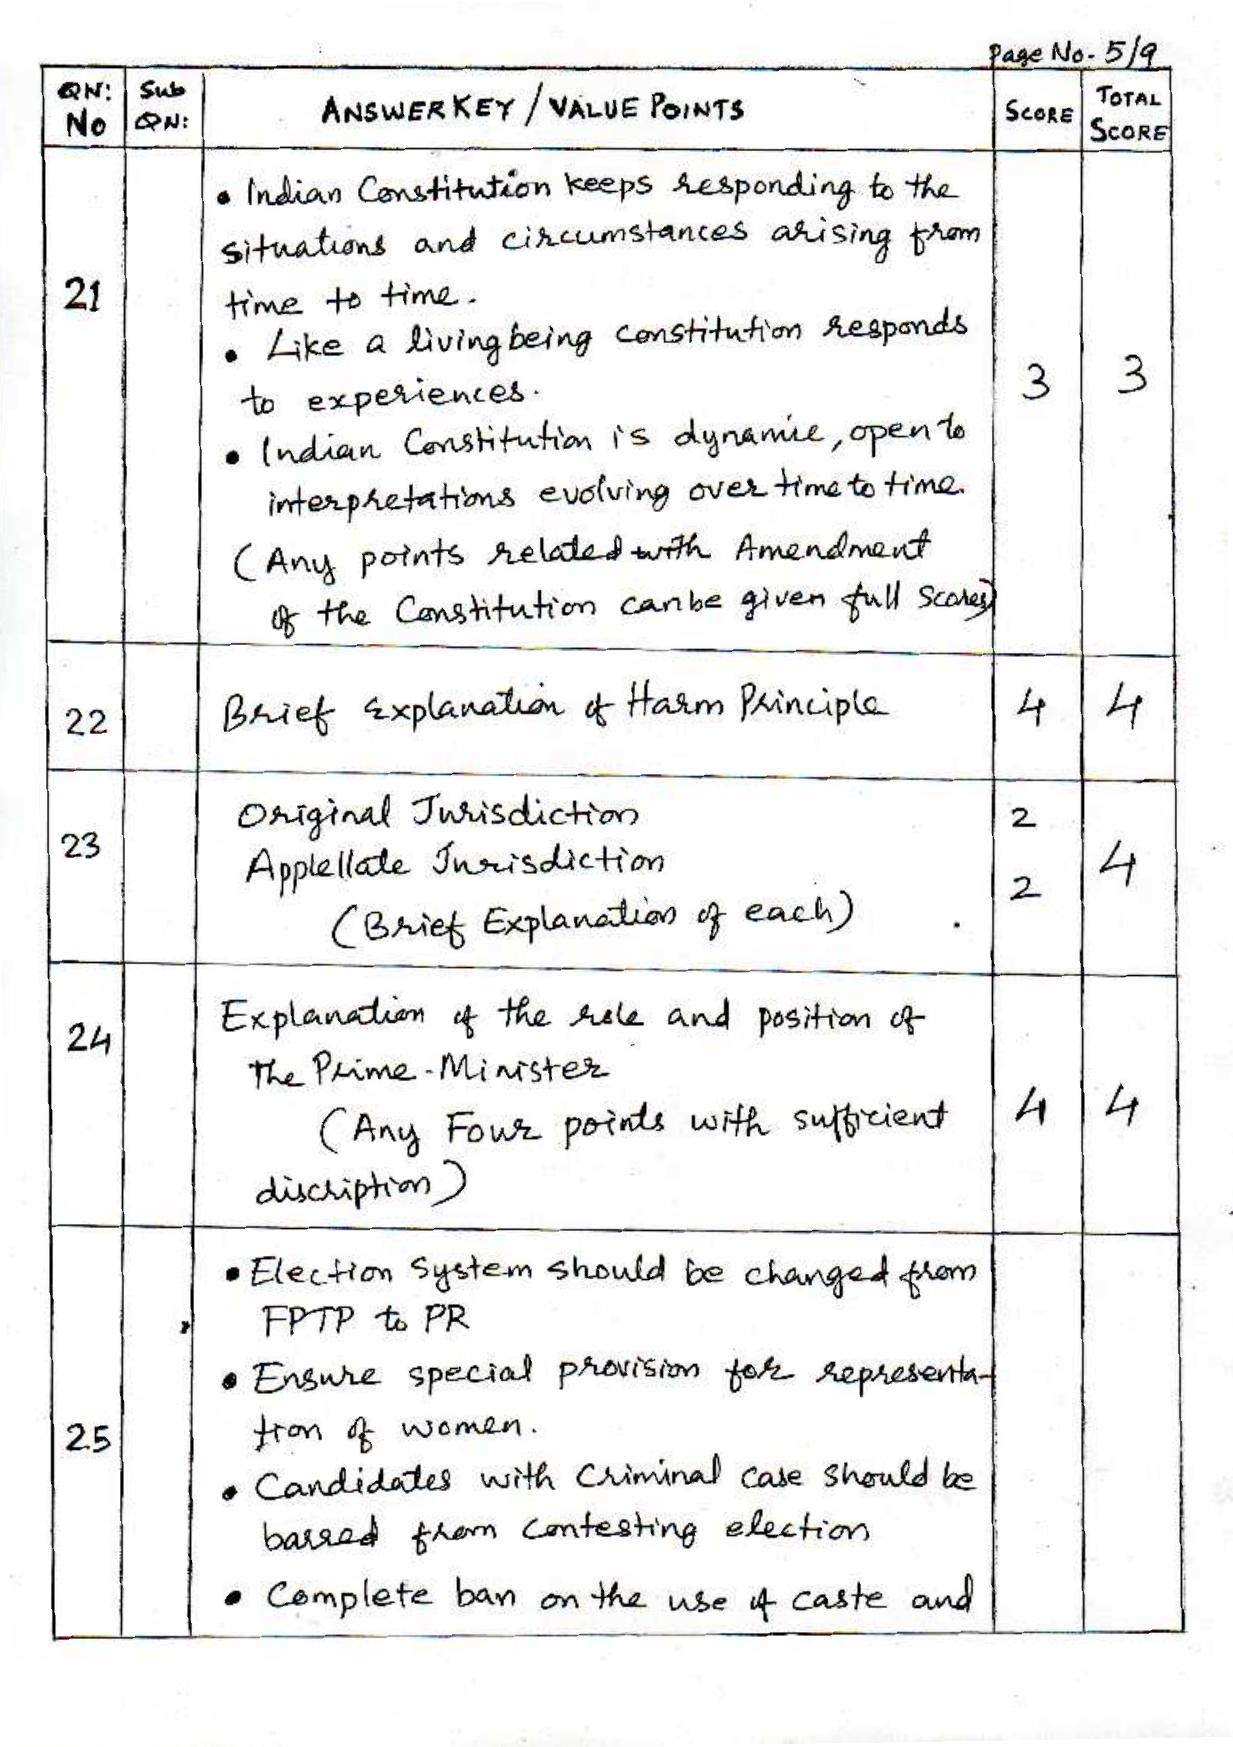 Page No. 5/9
QN: No
Sub QN:
ANSWER KEY / VALUE POINTS
SCORE
TOTAL SCORE
21
• Indian Constitution keeps responding to the
situations and circumstances arising from
time to time.
• Like a living being constitution responds
to experiences.
• Indian Constitution is dynamic, open to
interpretations evolving over time to time.
(Any points related with Amendment
of the Constitution can be given full Scores)
3
3
22
Brief Explanation of Harm Principle
4
4
23
Original Jurisdiction
2
Applellate Jurisdiction
2
4
(Brief Explanation of each)
24
Explanation of the role and position of
The Prime-Minister
(Any Four points with sufficient
discription)
4
4
25
• Election System should be changed from
FPTP to PR
• Ensure special provision for representa-
tion of women.
• Candidates with Criminal case should be
barred from contesting election
• Complete ban on the use of caste and